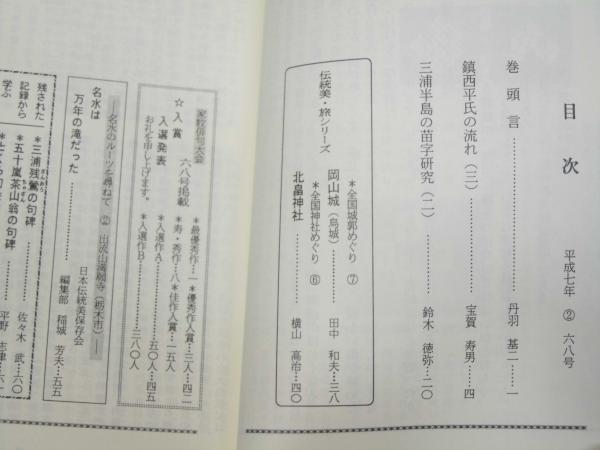 目次
平成七年 ② 六八号
巻頭言……………………丹羽 基二……一
鎮西平氏の流れ(三)……………………宝賀 寿男……四
三浦半島の苗字研究(二)……………………鈴木 徳弥…二〇
伝統美・旅シリーズ
*全国城郭めぐり ⑦
岡山城(烏城)……………田中 和夫…三八
*全国神社めぐり ⑥
北畠神社……………横山 高治…四〇
家紋俳句大会
☆入賞 六八号掲載
入選発表
お礼を申し上げます。
*最優秀作…一 *優秀作入賞…三人…四二
*寿・秀作…八 *佳作入賞…一五人
*入選作A……………五〇人…五四
*入選作B……………三八〇人
――名水のルーツを尋ねて ② 出流山満願寺(栃木市)――
名水は
万年の滝だった……………
日本伝統美保存会
編集部 稲城 芳夫…五五
残された
記録から
学ぶ
*三浦残鶯の句碑……………佐々木 武…六〇
*五十嵐茶山翁の句碑……平野